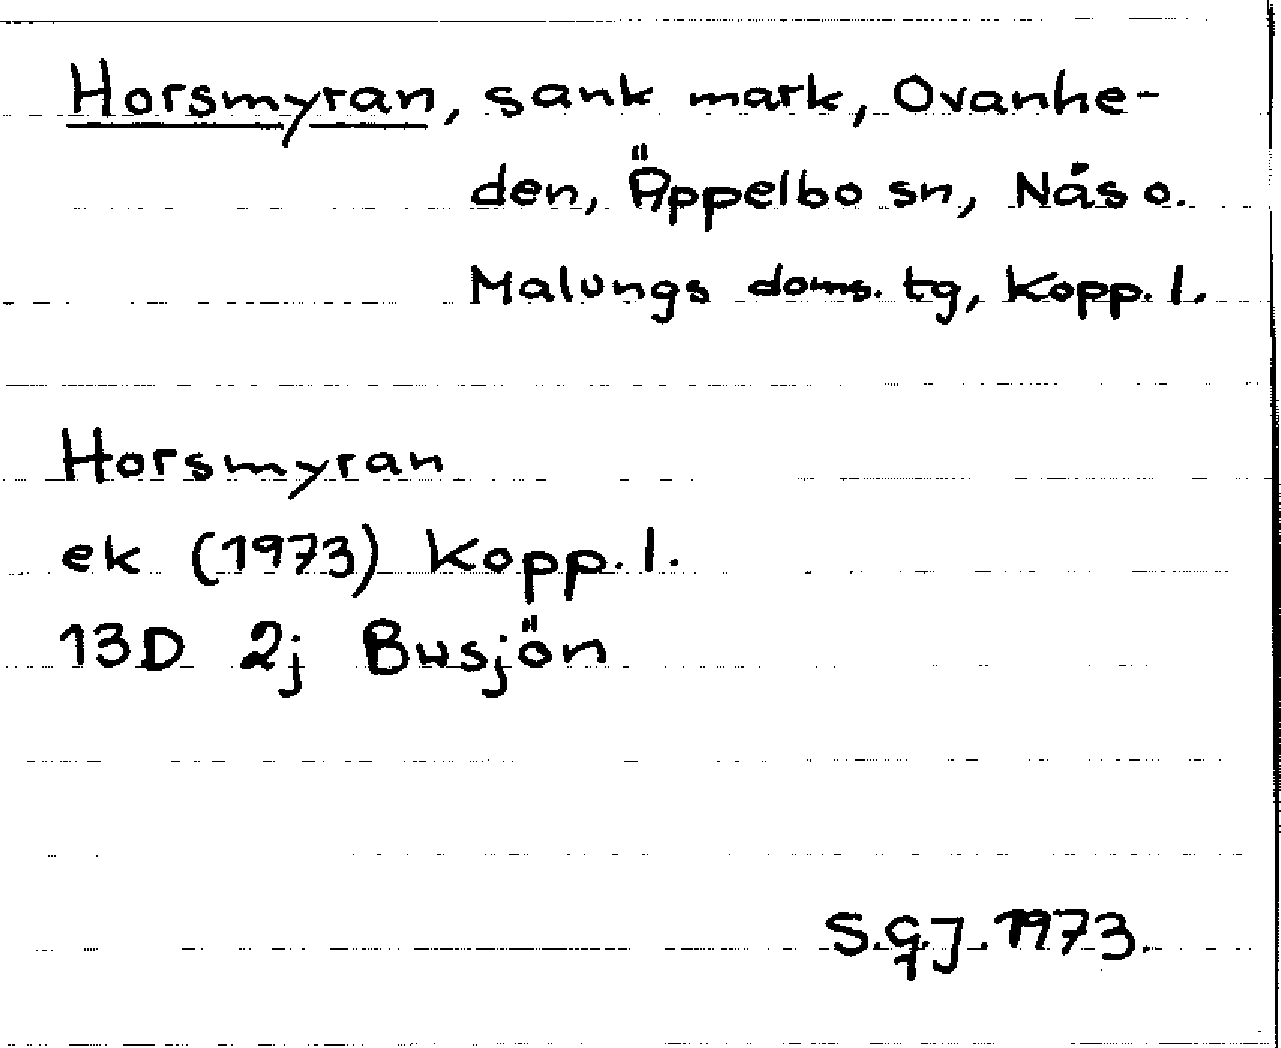 Horsmyran, sank mark, Ovanhe-
den, Äppelbo sn, Nås o.
Malungs doms. tg, Kopp. l.
Horsmyran
ek (1973) Kopp. l.
13D 2j Busjön
S.G.J. 1973.